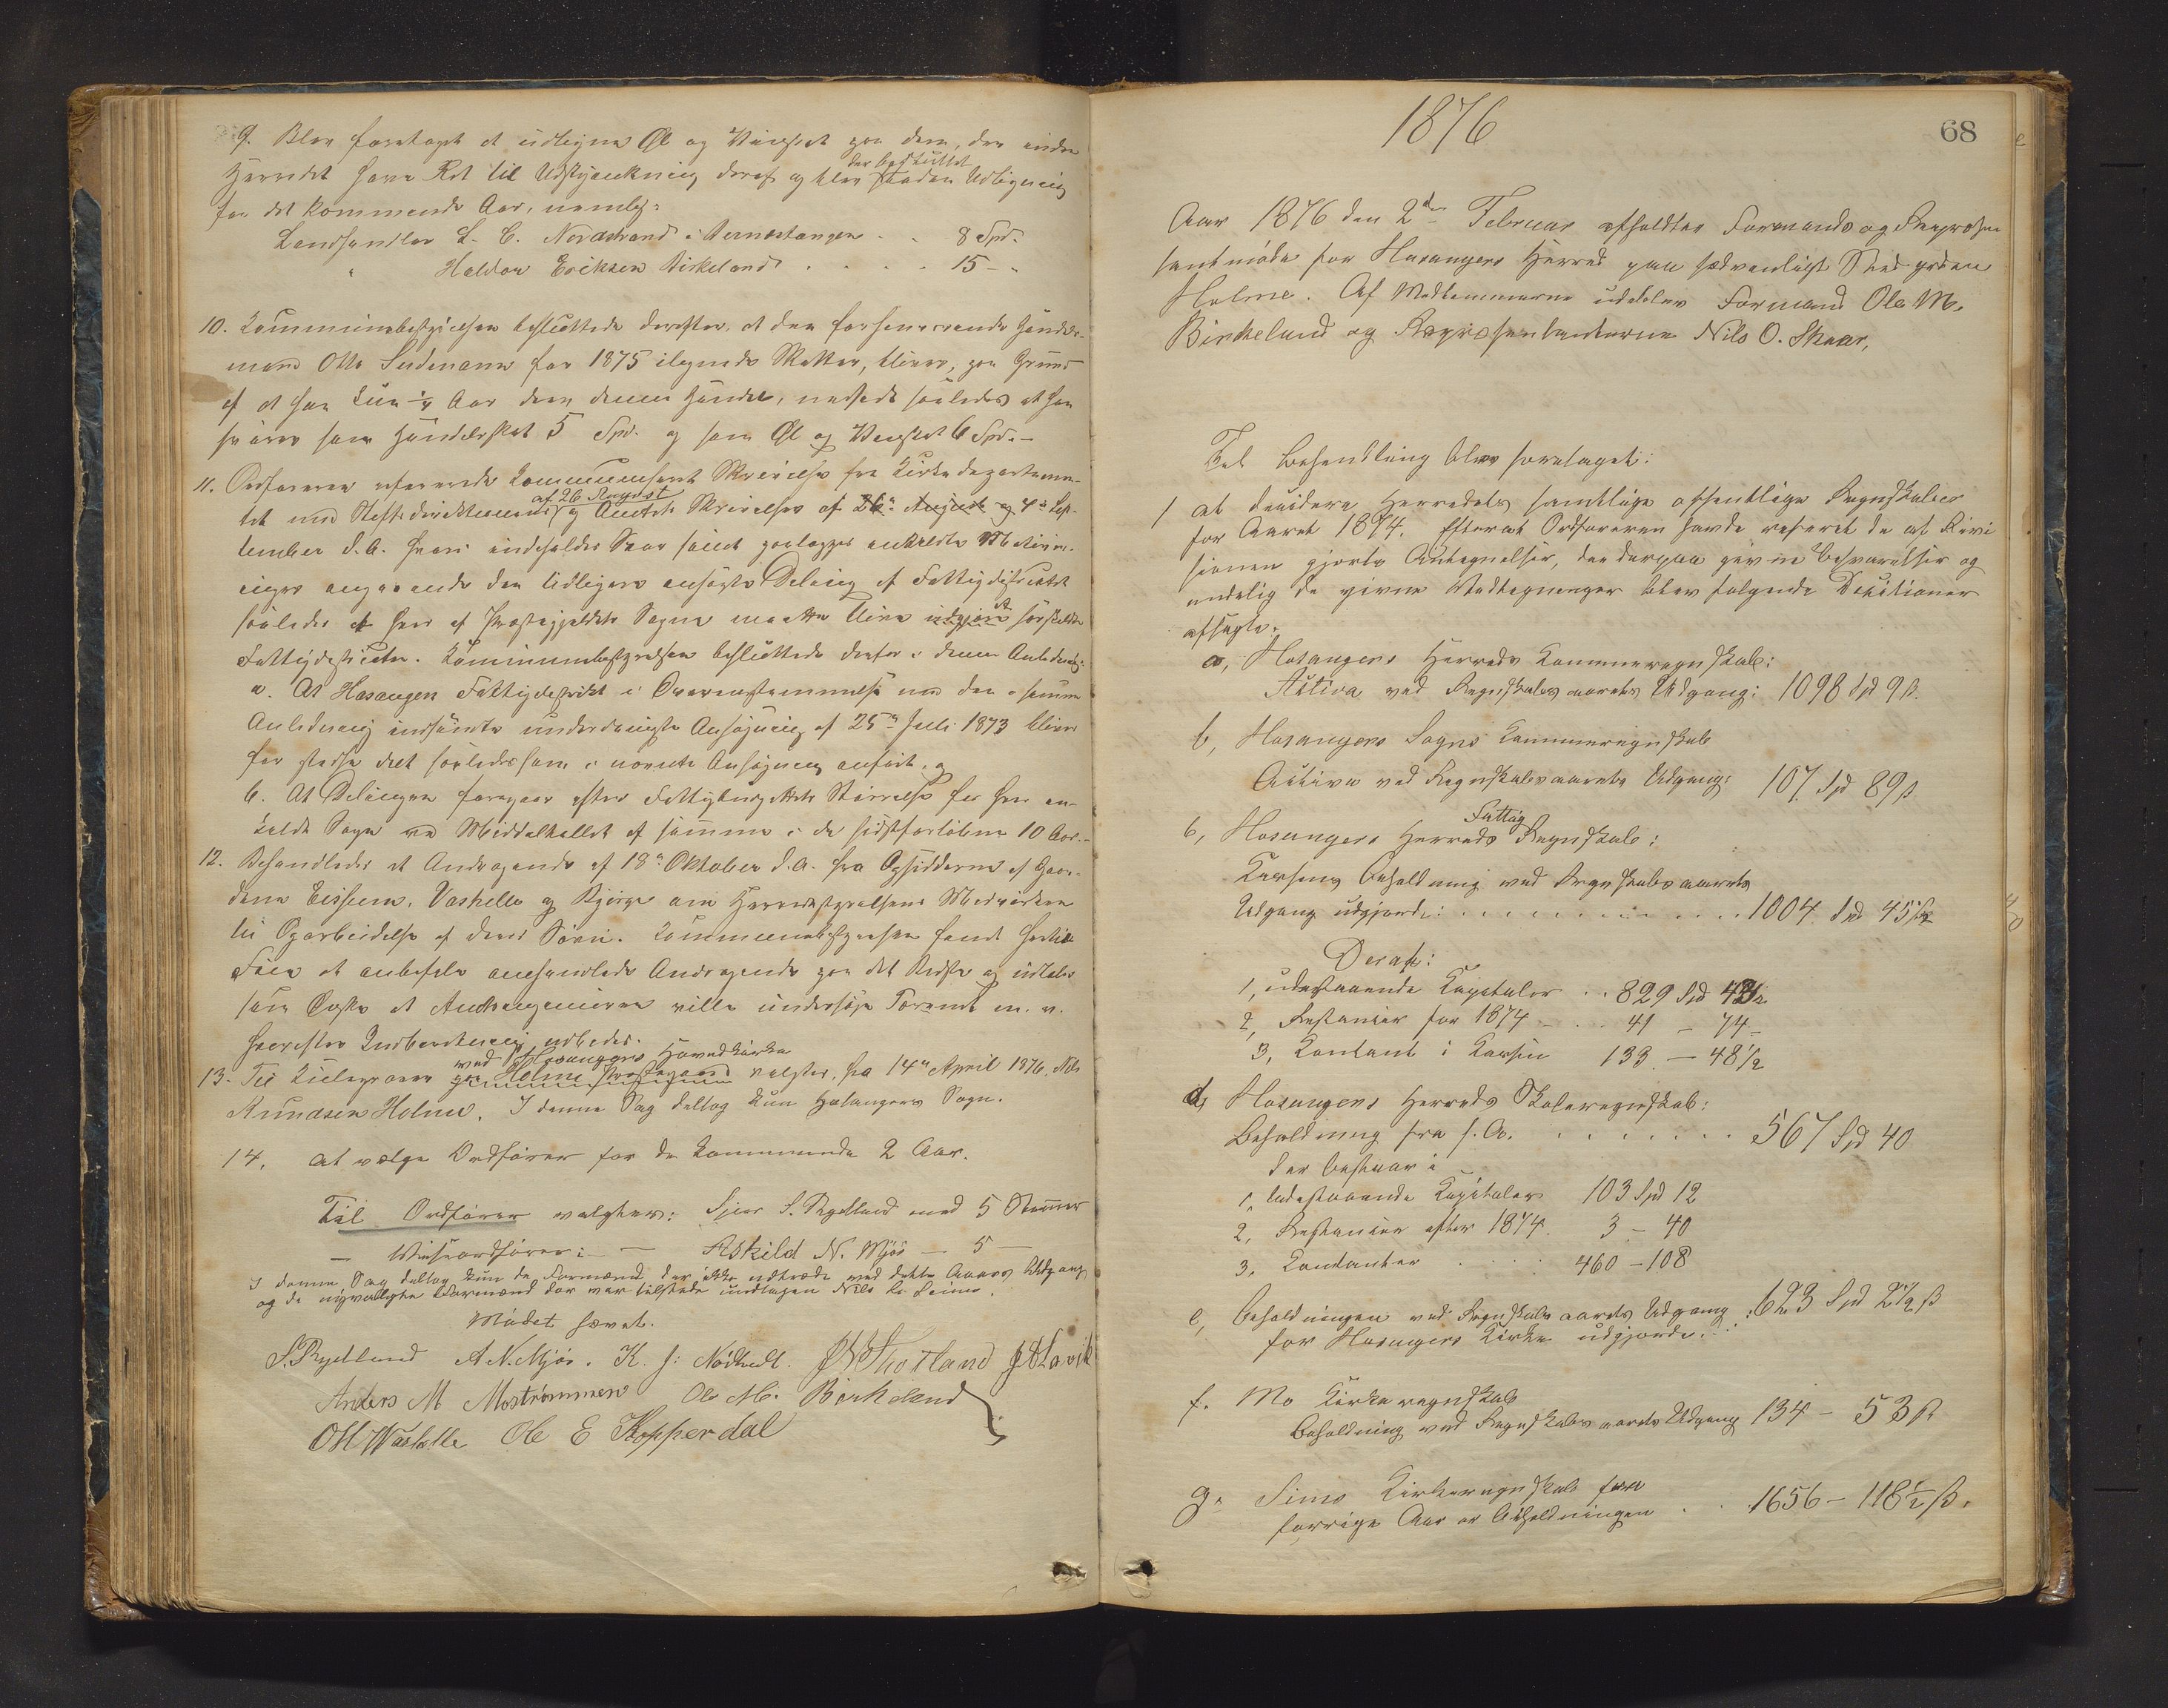 9. Blev foretaget at udligne Øl og Vinskat paa dem, der inden
Herredet have Ret til Udskjænkning deraf og blev der besluttet saadan Udligning
for det kommende Aar, nemlig:
Landhandler L. C. Nordstrand i Bernestangen . . 8 Spd.
" Haldor Eriksen Birkeland . . . . 15 - "
10. Kommunebestyrelsen besluttede derefter, at den forhenværende Handels-
mand Otto Sudmann for 1875 ilignede Skatter, bliver, paa Grund
af at han kun ¼ Aar drev denne Handel, nedsat saaledes at han
svarer som Handelsskat 5 Spd. og som Øl og Vinskat 6 Spd. -
11. Ordføreren refererede Kommunen Skrivelse fra Kirkedepartemen-
tet med Stiftsdirektionens af 26 August og Amtets Skrivelser af 26de August og 4de Sep-
tember d. A. hvori indeholdes Svar samt
angaaende den tidligere ansøgte Deling af Fattigdistriktet
saaledes at hver af Præstegjeldets Sogne maatte blive udgjøre særskildte
Fattigdistrikter. Kommunebestyrelsen besluttede derfor i denne Anledning:
a. At Hosanger Fattigdistrikt i Overensstemmelse med den i samme
Anledning indsendte underdanigste Ansøgning af 25de Juli 1873 bliver
for delt saaledes som i nævnte Ansøgning anført, og
b. At Delingen foregaar efter Fattigbudgettets Størrelse for hver en-
kelt Sogn ved Middeltallet af samme i de sidstforløbne 10 Aar. -
12. Behandledes et Andragende af 18de Oktober d. A. fra Opsidderne af Gaar-
dene Eissem, Vashelle og Kjørge om Herredsstyrelsens Medvirken
til Oparbeidelse af deres Veie. Kommunebestyrelsen fandt hertil
at anbefale omhandlede Andragende paa det Bedste og udtaler
som Ønske at Amtsingeniøren ville undersøge Terrænet m. v.
hvorefter Indberetning udbedes.
13. Til Kirkegraver ved Hosangers Hovedkirke paa Holme Præstegaard valgtes, fra 14de April 1876, Nils
Knudsen Holme. I denne Sag deltog kun Hosangers Sogn.
14. At vælge Ordfører for de kommende 2 Aar.
Til Ordfører valgtes: Sjur S. Rydland med 5 Stemmer
— Viseordfører: — Askild N. Mjøs — 5 —
I denne Sag deltog kun de Formænd der ikke udtræde ved dette Aars Udgang
og de nyvalgte Formænd der var tilstede undtagen Nils
Mødet hævet.
S. Rydland A. N. Mjøs. K. J. Nødtvedt. Thotland Lavik
Anders M Mostrømmen Ole M. Birkeland
O H Washelle Ole E Hopperdal
1876
68
Aar 1876 den 2den Februar afholdtes Formands og Repræsen
tantmøde for Hosangers Herred paa sædvanligt Sted gaarden
Holme. Af Medlemmerne udeblev Formand Ole M.
Birkeland og Repræsentanterne Nils O. Skaar,
Til Behandling blev foretaget:
1 at decidere Herredets samtlige offentlige Regnskaber
for Aaret 1874. Efterat Ordføreren havde referet de af Revi
sionen gjorte Antegnelser, de derpaa givne Besvarelser og
endelig de givne Vedtegninger blev følgende Decitioner
afsagte.
a, Hosangers Herreds Kommuneregnskab:
Activa ved Regnskabsaarets Udgang: 1098 Spd 9 ß.
b, Hosangers Sogns Kommuneregnskab
Activa ved Regnskabsaarets Udgang: 107 Spd 89 ß
c, Hosangers Herreds Fattig Regnskab:
Kassens Beholdning ved Regnskabsaarets
Udgang udgjorde: . . . . . . . . . 1004 Spd 45½
Deraf:
1, udestaaende Kapitaler . . 829 Spd 43½
2, Restancer for 1874 — . . 41 — 74 —
3, Kontant i Kassen 133 — 48½
d, Hosangers Herreds Skoleregnskab:
Beholdning fra f. A. . . . . . . . 567 Spd 40
der bestaar i
1, Udestaaende Kapitaler 103 Spd 12
2, Restancer efter 1874. 3 — 40
3, Kontanter . . . 460 — 108
e, Beholdningen ved Regnskabsaarets Udgang
for Hosangers Kirke udgjorde: . . 623 Spd 2½ ß
f. Mo Kirkeregnskab
Beholdning ved Regnskabsaarets Udgang 134 — 53 ß
g. Eines Kirkeregnskab fra
forrige Aar er Beholdningen . . 1656 — 118½ ß.